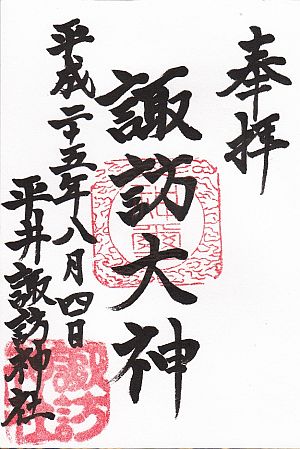 奉拝
諏訪大神
平成二十五年八月四日
平井諏訪神社